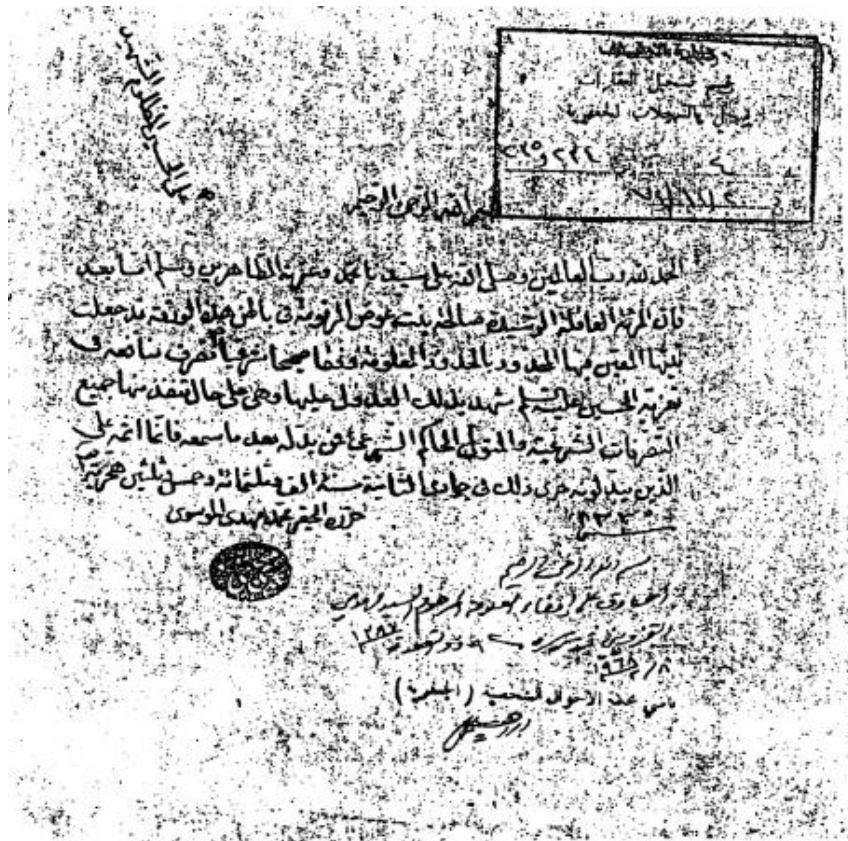 على الحسين المظلوم الشهيد
قسم تسجيل العقارات
٢٣٤ و ٢٣٥
بسم الله الرحمن الرحيم
الحمد لله رب العالمين وصلى الله على سيدنا محمد وعترته الطاهرين وسلم اما بعد
فان المرئة العاقلة الرشيدة صالحة بنت عوض المرقومة في باطن هذه الورقة قد جعلت
بيتها المعين بها المحدود بالحدود المعلومة وقفا صحيحا شرعيا تصرف منافعه في
تعزية الحسين عليه السلم شهد بذلك العدول عليها وهي على حال تنفذ منها جميع
التصرفات الشرعية والمتولي الحاكم الشرعي فمن بدله بعد ما سمعه فانما اثمه على
الذين يبدلونه جرى ذلك في جمادى الثانية سنة الف وثلثمائة وخمس وثلثين هجرية
١٣٣٥ حرره الحقير محمد مهدي الموسوي
بسم الله الرحمن الرحيم
المرحوم السيد
القزويني قدس سره
قاضي محكمة الاحوال الشخصية (الجعفرية)